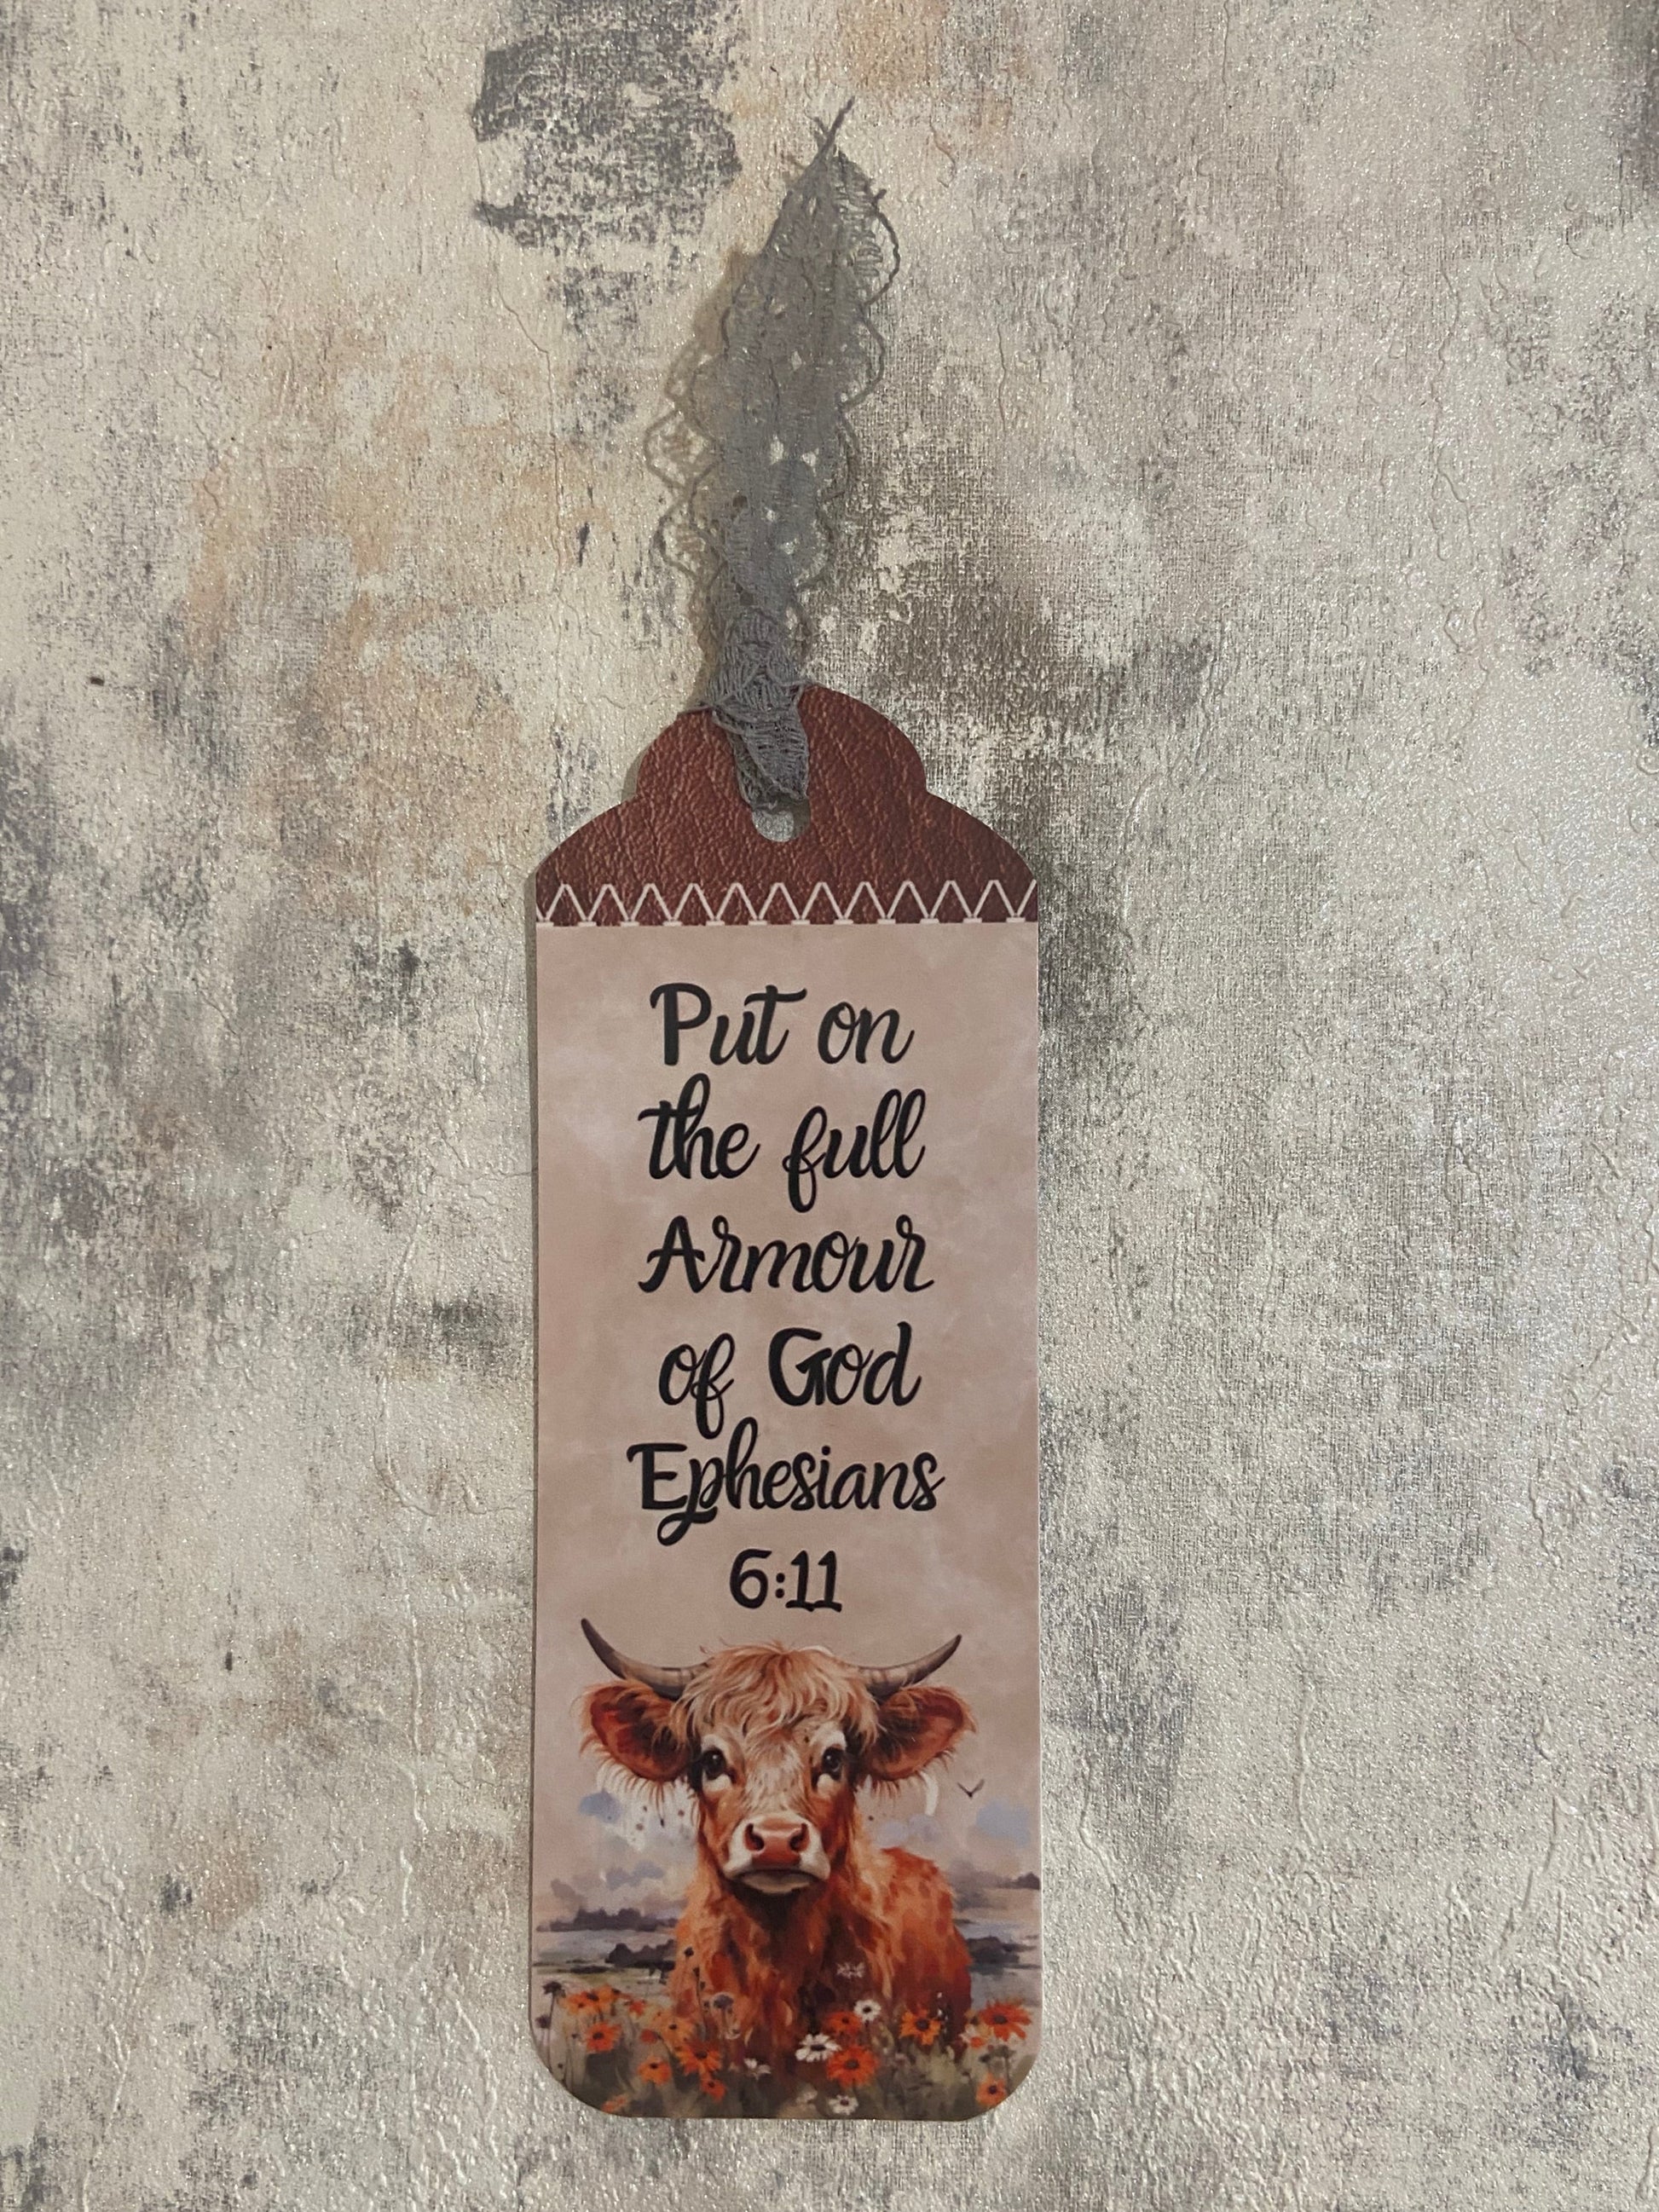 Put on
the full
Armour
of God
Ephesians
6:11